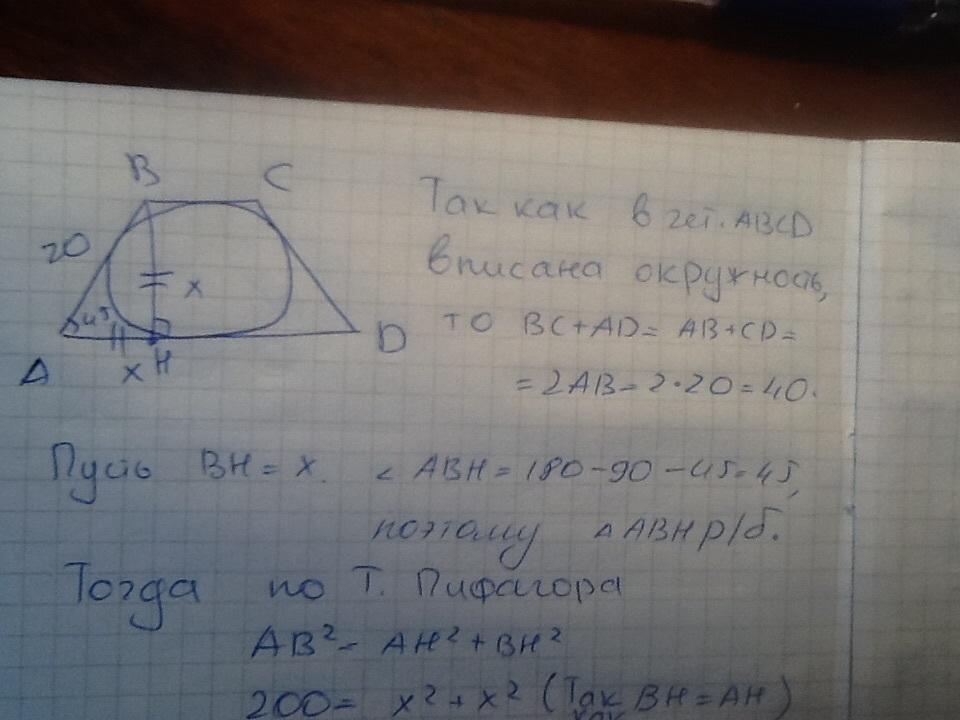 B C
20
45
x
A x H D
Так как в чет. ABCD
вписана окружность,
то BC+AD= AB+CD=
=2AB=2·20=40.
Пусть BH=x. ∠ABH=180-90-45=45,
поэтому △ABH р/б.
Тогда по Т. Пифагора
AB²= AH²+BH²
200= x²+x² (Так BH=AH)
как